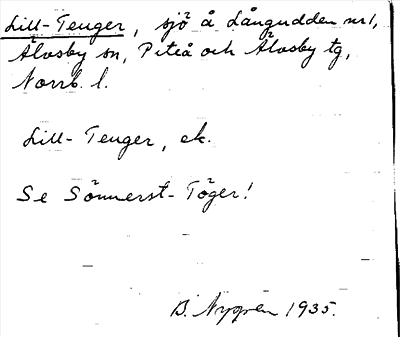 Lill-Teuger, sjö å Långudden nr 1,
Älvsby sn, Piteå och Älvsby tg,
Norrb. l.
Lill-Teuger, ek.
Se Sönnerst-Töger!
B. Nygren 1935.